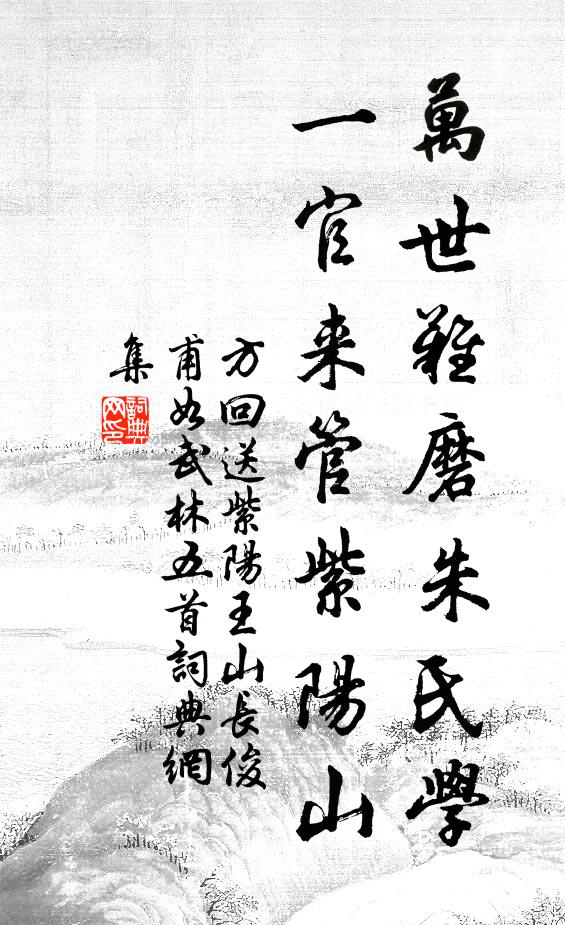 萬世難磨朱氏學
一官来管紫陽山
方回送紫陽王山長俊
甫如武林五首詞典網
集
詞典
网印